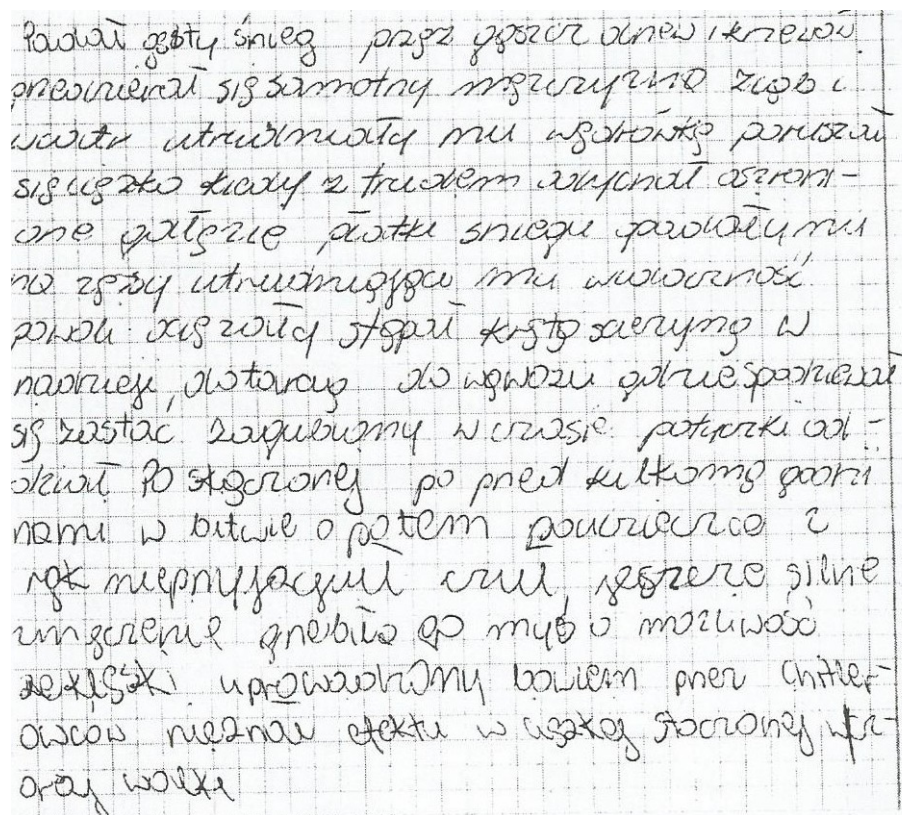 Padał gęsty śnieg przez gąszcz drzew i krzewów
przedzierał się samotny mężczyzna ziąb i
wiatr utrudniały mu wędrówkę poruszał
się ciężko kiedy z trudem odychał oszroni-
one gałęzie płatki sniegu padały mu
na rzęsy utrudniającu mu widoczność
powoli ociężały stąpał krętą scierzyną w
nadzieji dotarcią do wąwozu gdzie spodziewał
się zastać zagubiony w czasie potyczki od-
dział Po stączonej po pned kilkomą godzi
nami w bitwie o potem poucieczce z
rąk niepnyjaciuł czuł jeszcze silne
zmęczenię gnębiło go myśl o mozliwość
klęski uprowadzomy bowiem pnez chitler-
owców nieznał efektu w ciężkej stoczonej wcz-
oraj walki